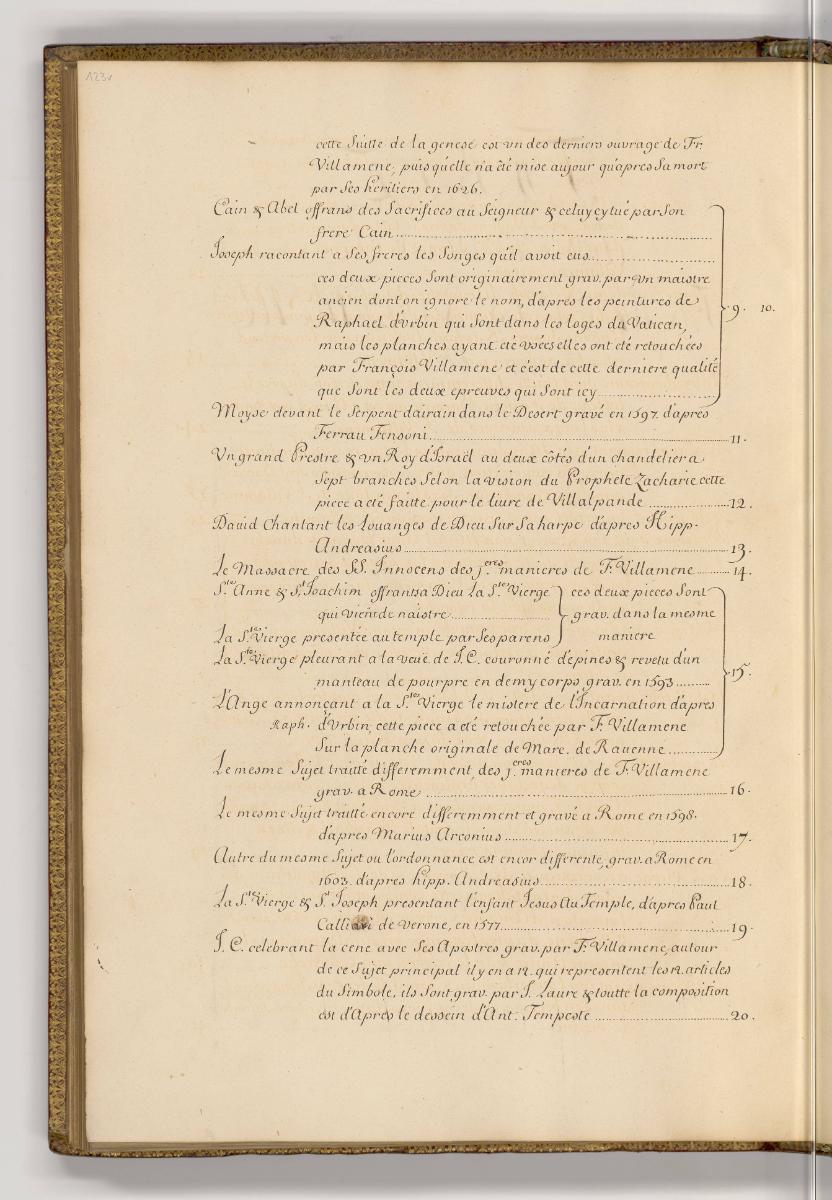 123v
cette Suitte de la genese est un des derniers ouvrage de Fr.
Villamene, puis qu'elle n'a été mise aujour qu'apres Sa mort
par Ses heritiers en 1626.
Cain & Abel offrans des Sacrifices au Seigneur & celuy cy tué par Son
frere Cain
Joseph racontant a Ses freres les Songes qu'il avoit eus
ces deux pieces Sont originairement grav. par un maistre
ancien dont on ignore le nom, d'apres les peintures de
Raphael d'Urbin qui Sont dans les loges du Vatican,
mais les planches ayant eté usées elles ont eté retouchées
par François Villamene et c'est de cette derniere qualité
que Sont les deux epreuves qui Sont icy 9. 10.
Moyse elevant le Serpent d'airain dans le Desert gravé en 1597. d'apres
Ferrau Fensoni 11.
Un grand Prestre & un Roy d'Israël au deux côtés d'un chandelier a
Sept branches Selon la vision du Prophete Zacharie cette
piece a eté faitte pour le liure de Villalpande 12.
Dauid Chantant les Louanges de Dieu Sur Sa harpe d'apres Hipp.
Andreasius 13.
Le Massacre des SS. Innocens des j.eres manieres de F. Villamene 14.
S.te Anne & S.t Joachim offrants a Dieu La S.te Vierge
qui vient de naistre
La S.te Vierge presentée au temple par Ses parens
ces deux pieces Sont
grav. dans la mesme
maniere
La S.te Vierge pleurant a la veuë de J. C. couronné d'epines & revetu d'un
manteau de pourpre en demy corps, grav. en 1593 15.
L'Ange annonçant a la S.te Vierge le mistere de l'Incarnation d'apres
Raph. d'Urbin, cette piece a eté retouchée par F. Villamene
Sur la planche originale de Marc. de Rauenne
Le mesme Sujet traitté differemment, des j.eres manieres de F. Villamene
grav. a Rome 16.
Le mesme Sujet traitté encore differemment et gravé a Rome en 1598.
d'apres Marius Arconius 17.
Autre du mesme Sujet ou l'ordonnance est encor differente, grav. a Rome en
1603. d'apres hipp. Andreasius 18.
La S.te Vierge & S.t Joseph presentant l'enfant Jesus Au Temple, d'apres Paul
Calliari de Verone, en 1577 19.
J. C. celebrant la cene avec Ses Apostres grav. par F. Villamene, autour
de ce Sujet principal il y en a 12. qui representent les 12. articles
du Simbole, ils Sont grav. par J. Laure & toutte la composition
est d'Après le dessein d'Ant. Tempeste 20.